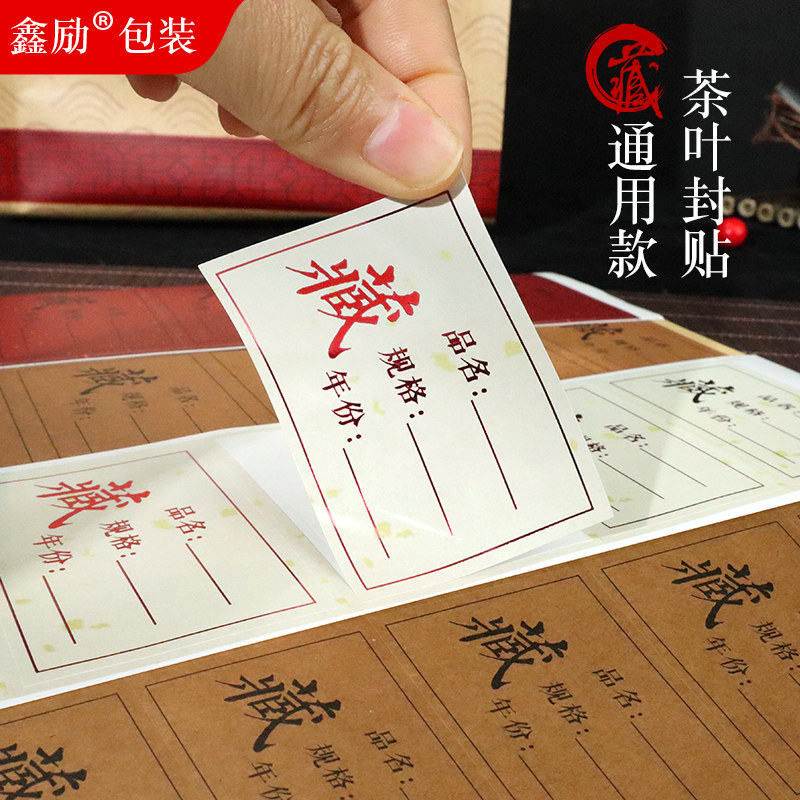 鑫励®包装
藏
茶叶封贴
通用款
藏
品名：
规格：
年份：
藏
品名：
规格：
年份：
藏
规格：
年份：
藏
品名：
规格：
年份：
藏
规格：
年份：
藏
品名：
规格：
年份：
藏
品名：
规格：
年份：
藏